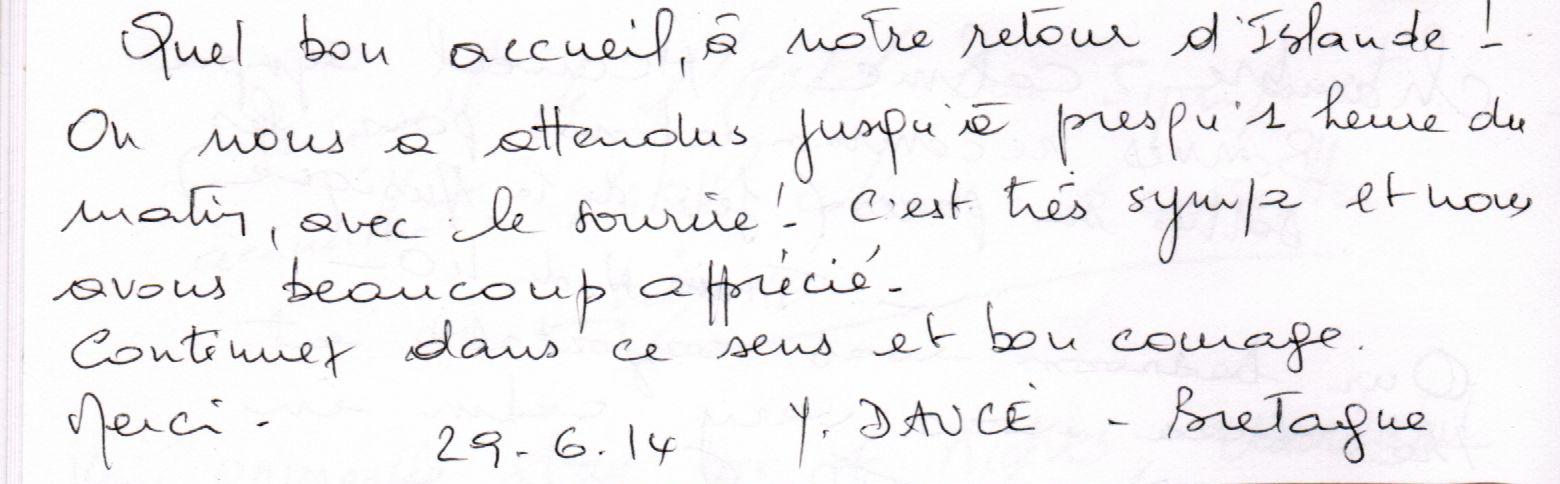 Quel bon accueil, à notre retour d'Islande !
On nous a attendus jusqu'à presqu'1 heure du
matin, avec le sourire ! C'est très sympa et nous
avons beaucoup apprécié.
Continuez dans ce sens et bon courage.
Merci. 29.6.14 Y. DAUCÉ - Bretagne